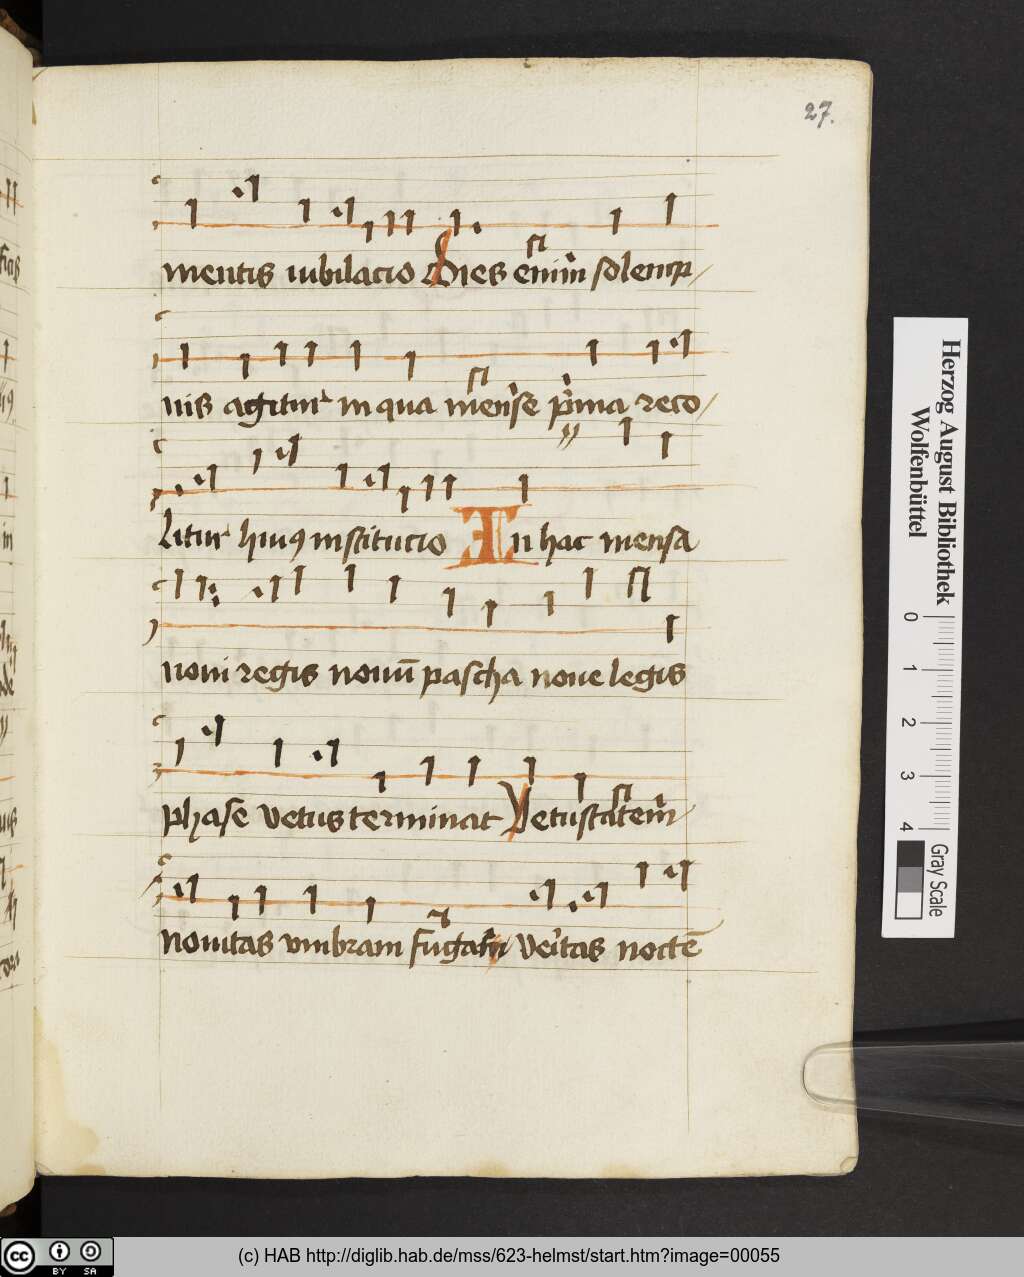 27.
mentis iubilacio Dies enim solemp/
nis agitur in qua mense prima reco/
litur huiꝰ institucio In hac mensa
noui regis nouū pascha noue legis
phase vetus terminat Vetustatem
nouitas vmbram fugat veritas noctē
Herzog August Bibliothek
Wolfenbüttel
0 1 2 3 4
Gray Scale
cc BY SA
(c) HAB http://diglib.hab.de/mss/623-helmst/start.htm?image=00055